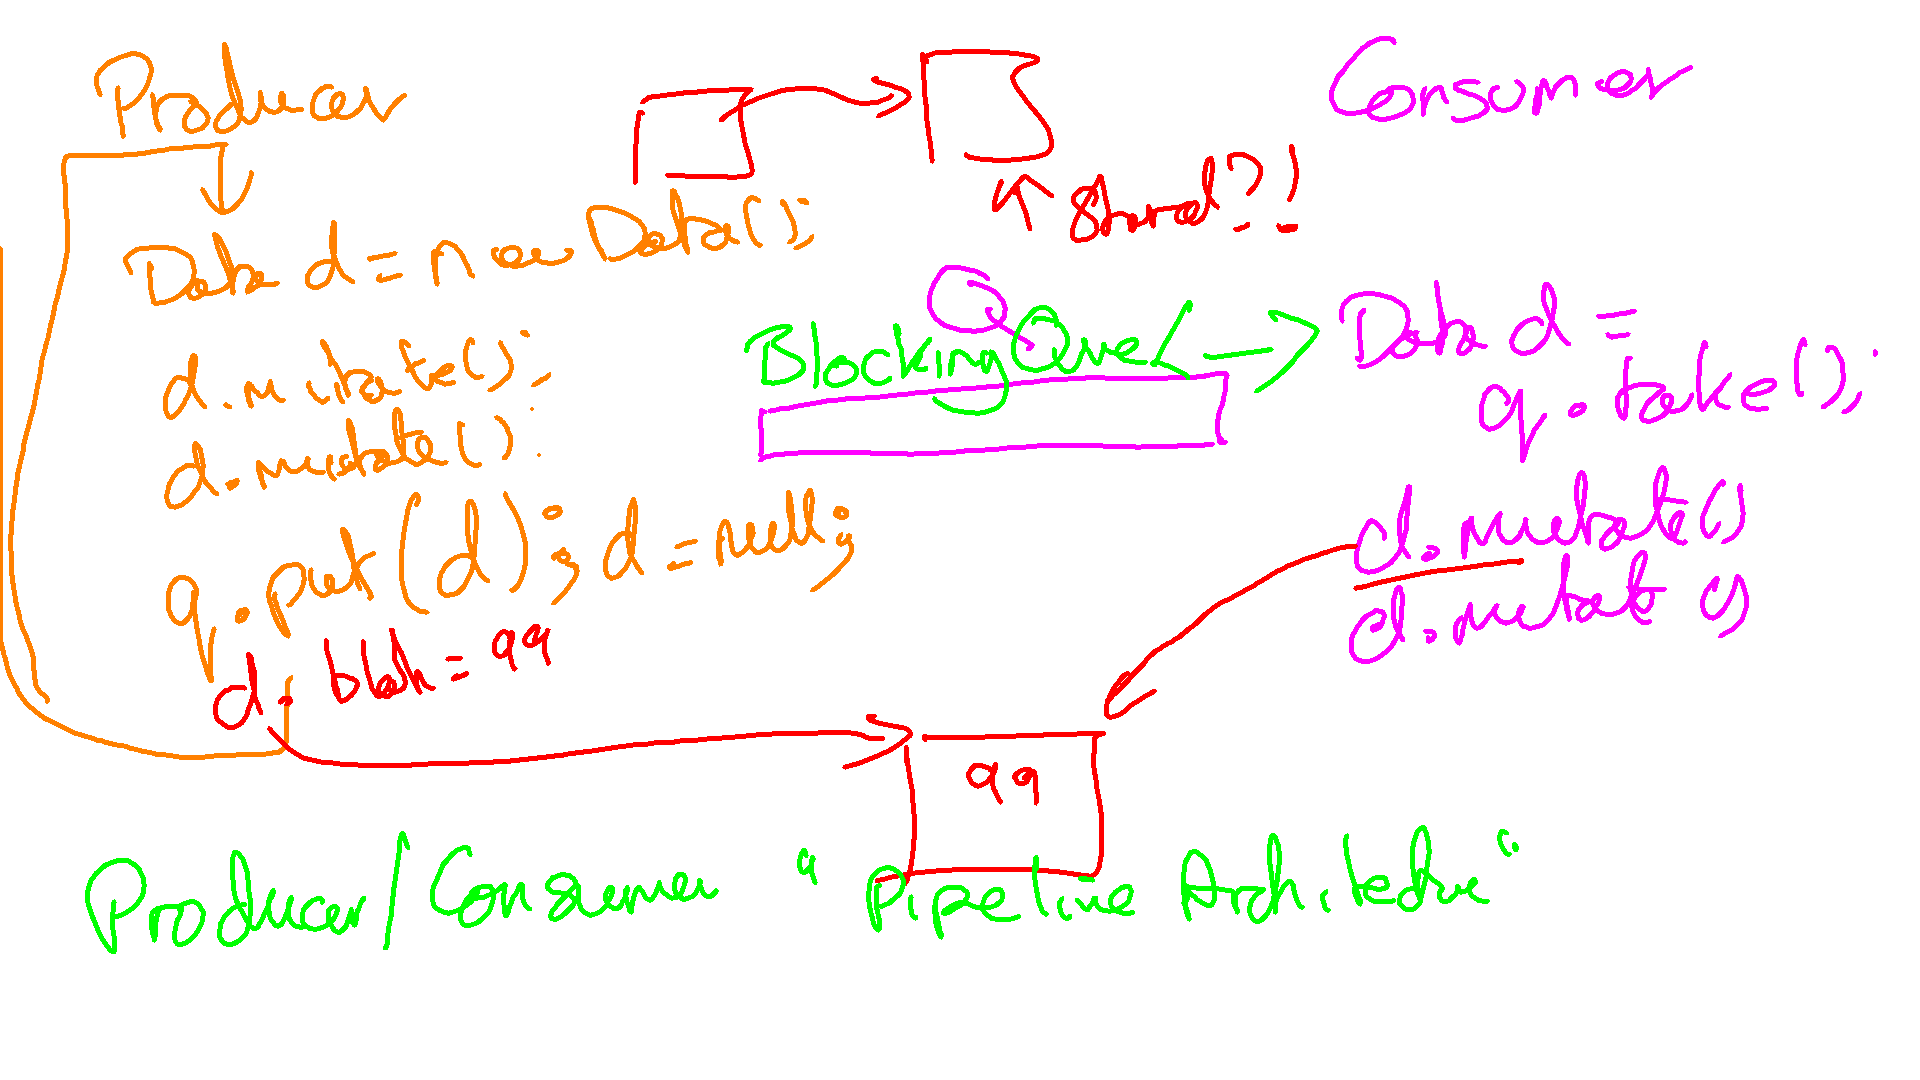 Producer
Data d = new Data();
d.mutate();
d.mutate();
q.put(d); d = null;
d.blah = 99
Shared?!
Q
BlockingQueue
99
Consumer
Data d =
q.take();
d.mutate()
d.mutate()
Producer/Consumer "Pipeline Architecture"